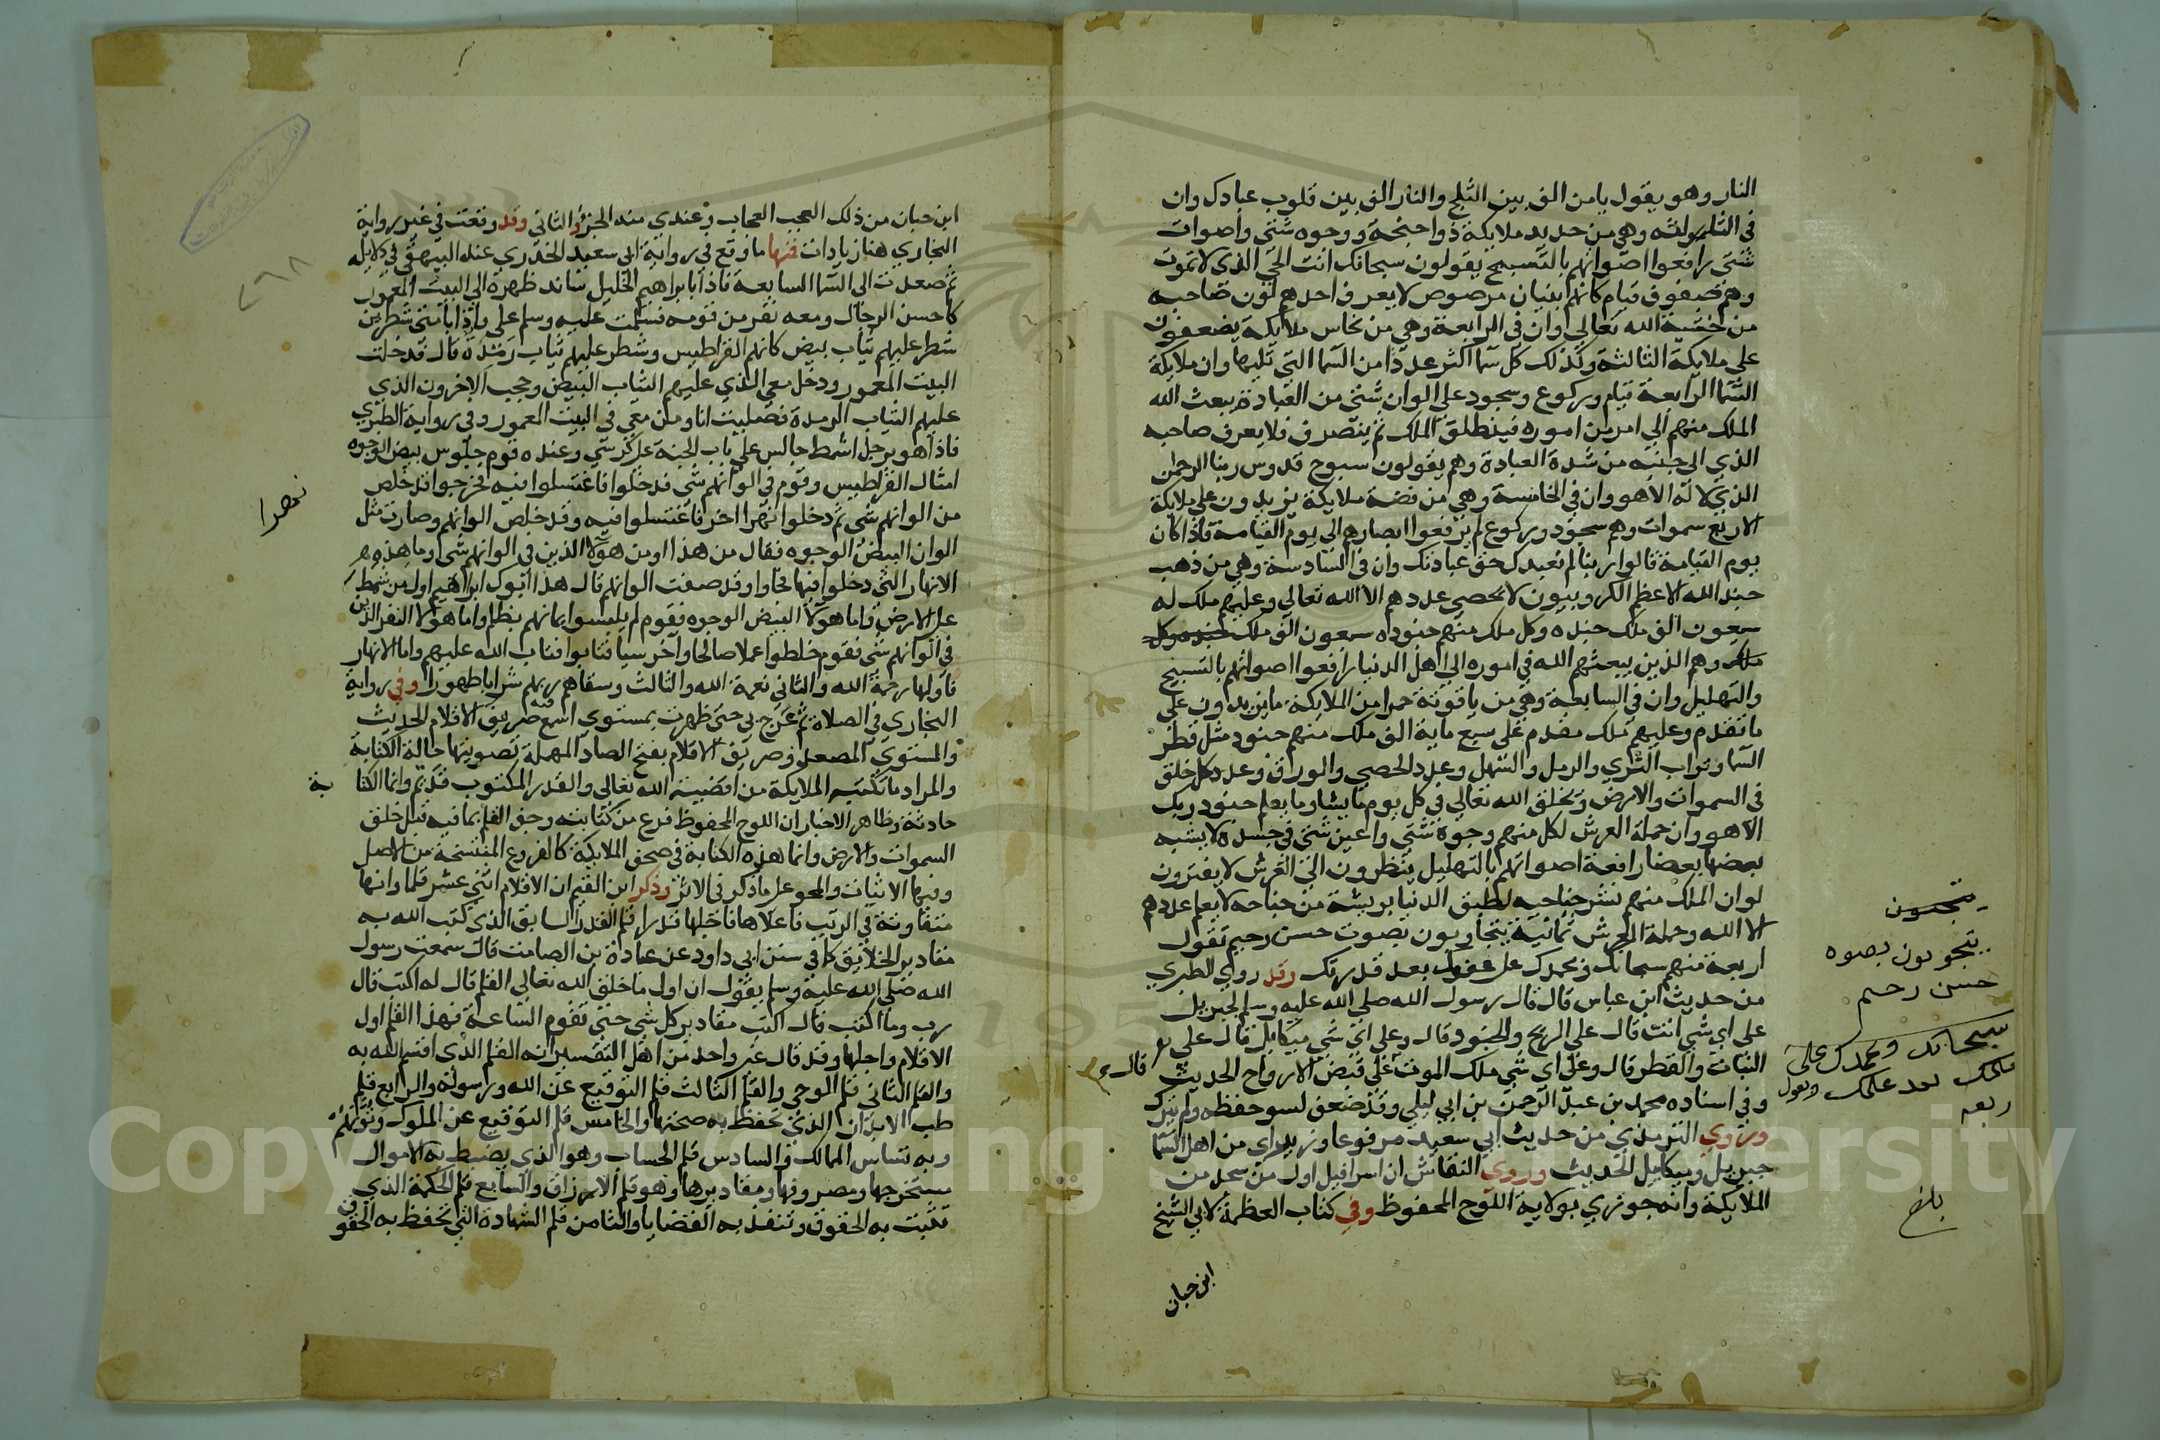 النار وهو يقول يا من الف بين الثلج والنار الف بين قلوب عبادك وان
في الثالثة وهي من حديد ملايكة ذوا اجنحة ووجوه شتى واصوات
شتى رافعوا اصواتهم بالتسبيح يقولون سبحانك انت الحي الذي لا تموت
وهم صفوف قيام كانهم بنيان مرصوص لا يعرف احدهم لون صاحبه
من خشية الله تعالى وان في الرابعة وهي من نحاس ملايكة يضعفون
على ملايكة الثالثة وكذلك كل سما اكثر عددا من السما التي تليها وان ملايكة
السما الرابعة قيام وركوع وسجود على الوان شتى من العبادة يبعث الله
الملك منهم الى امر من اموره فينطلق الملك ثم ينصرف فلا يعرف صاحبه
الذي الى جنبه من شدة العبادة وهم يقولون سبوح قدوس ربنا الرحمن
الذي لا اله الا هو وان في الخامسة وهي من فضة ملايكة يزيدون على ملايكة
الاربع سموات وهم سجود وركوع لم يرفعوا ابصارهم الى يوم القيامة فاذا كان
يوم القيامة قالوا ربنا لم نعبدك حق عبادتك وان في السادسة وهي من ذهب
جند الله الاعظم الكروبيون لا يحصى عددهم الا الله تعالى وعليهم ملك له
سبعون الف ملك جنده وكل ملك منهم جنوده سبعون الف ملك
وهم الذين يبعثهم الله في اموره الى اهل الدنيا رافعوا اصواتهم بالتسبيح
والتهليل وان في السابعة وهي من ياقوتة حمرا من الملايكة ما يزيدون على
ما تقدم وعليهم ملك مقدم على سبع ماية الف ملك منهم جنود مثل قطر
السما وتراب الثرى والرمل والسهل وعدد الحصى والورق وعدد كل خلق
في السموات والارض ويخلق الله تعالى في كل يوم ما يشا وما يعلم جنود ربك
الا هو وان حملة العرش لكل منهم وجوه شتى واعين شتى في جسده لا يشبه
بعضها بعضا رافعة اصواتهم بالتهليل ينظرون الى العرش لا يفترون
لو ان الملك منهم نشر جناحيه لطبق الدنيا بريشة من جناحه لا يعلم عددهم
الا الله وحملة العرش ثمانية يتجاوبون بصوت حسن رحيم تقول
اربعة منهم سبحانك وبحمدك على عفوك بعد قدرتك وقد روى الطبري
من حديث ابن عباس قال قال رسول الله صلى الله عليه وسلم لجبريل
على اي شي انت قال على الريح والجنود قال وعلى اي شي ميكايل قال على
النبات والقطر قال وعلى اي شي ملك الموت على قبض الارواح الحديث
وفي اسناده محمد بن عبد الرحمن بن ابي ليلى وقد ضعف لسو حفظه ولم يترك
وروى الترمذي من حديث ابي سعيد مرفوعا وزيراي من اهل السما
جبريل وميكايل الحديث وروى النقاش ان اسرافيل اول من سجد من
الملايكة وانه جوزي بولاية اللوح المحفوظ وفي كتاب العظمة لابي الشيخ
ابن حبان
يتجاوبون بصوت
حسن رحيم
سبحانك وبحمدك على
حلمك بعد علمك ويقول
اربعة
بلغ
قال
ابن حبان من ذلك العجب العجاب وعندي منه الجزؤ الثاني وقد وقعت في غير رواية
البخاري هنا زيادات فمنها ما وقع في رواية ابي سعيد الخدري عند البيهقي في دلايله
ثم صعدت الى السما السابعة فاذا بابراهيم الخليل ساند ظهره الى البيت المعمور
كاحسن الرجال ومعه نفر من قومه فسلمت عليه وسلم علي واذا بامتي شطرين
شطر عليهم ثياب بيض كانهم القراطيس وشطر عليهم ثياب رمدة قال فدخلت
البيت المعمور ودخل معي الذي عليهم الثياب البيض وحجب الاخرون الذي
عليهم الثياب الرمدة فصليت انا ومن معي في البيت المعمور وفي رواية الطبري
فاذا هو برجل اشمط جالس على باب الجنة على كرسي وعنده قوم جلوس بيض الوجوه
امثال القراطيس وقوم في الوانهم شي فدخلوا فاغتسلوا فيه فخرجوا قد خلص
من الوانهم شي ثم دخلوا نهرا اخر فاغتسلوا فيه وقد خلص الوانهم وصارت مثل
الوان البيض الوجوه فقال من هذا ومن هولا الذين في الوانهم شي وما هذه
الانهار التي دخلوا فيها فجاوا وقد صفت الوانهم قال هذا ابوك ابراهيم اول من شمط
على الارض واما هولا البيض الوجوه فقوم لم يلبسوا ايمانهم بظلم واما هولا النفر الذين
في الوانهم شي فقوم خلطوا عملا صالحا واخر سيا فتابوا فتاب الله عليهم واما الانهار
فاولها رحمة الله والثاني نعمة الله والثالث وسقاهم ربهم شرابا طهورا وفي رواية
البخاري في الصلاة ثم عرج بي حتى ظهرت بمستوى اسمع فيه صريف الاقلام الحديث
والمستوى المصعد وصريف الاقلام بفتح الصاد المهملة تصويتها حالة الكتابة
والمراد ما تكتبه الملايكة من اقضية الله تعالى والقدر المكتوب قديم وانما الكتا
بة
حادثة وظاهر الاخبار ان اللوح المحفوظ فرغ من كتابته وجف القلم بما فيه قبل خلق
السموات والارض وانما هذه الكتابة في صحف الملايكة كالفروع المنتسخة من الاصل
وفيها الاثبات والمحو على ما ذكر في الاثر وذكر ابن القيم ان الاقلام اثني عشر قلما وانها
متفاوتة في الرتب فاعلاها فاجلها قدرا قلم القدر السابق الذي كتب الله به
مقادير الخلايق كما في سنن ابي داود عن عبادة بن الصامت قال سمعت رسول
الله صلى الله عليه وسلم يقول ان اول ما خلق الله تعالى القلم قال له اكتب قال
رب وما اكتب قال اكتب مقادير كل شي حتى تقوم الساعة فهذا القلم اول
الاقلام واجلها وقد قال غير واحد من اهل التفسير انه القلم الذي اقسم الله به
والقلم الثاني قلم الوحي والقلم الثالث قلم التوقيع عن الله ورسوله والرابع قلم
طب الابدان الذي تحفظ به صحتها والخامس قلم التوقيع عن الملوك ونوابهم
وبه تساس الممالك والسادس قلم الحساب وهو الذي يضبط به الاموال
مستخرجها ومصروفها ومقاديرها وهو قلم الارزاق والسابع قلم الحكم الذي
تثبت به الحقوق وتنفذ به القضايا والثامن قلم الشهادة التي تحفظ به الحقوق
نهرا
٢٦٨
Copyright © King Saud University